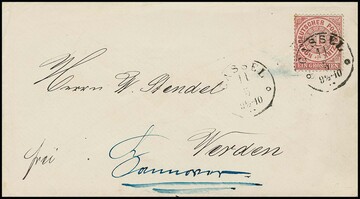 DEUTSCHER POST
EIN GROSCHEN
CASSEL
11
9½-10
CASSEL
11
9½-10
Herrn W. Bendel
Werden
frei.
Hannover